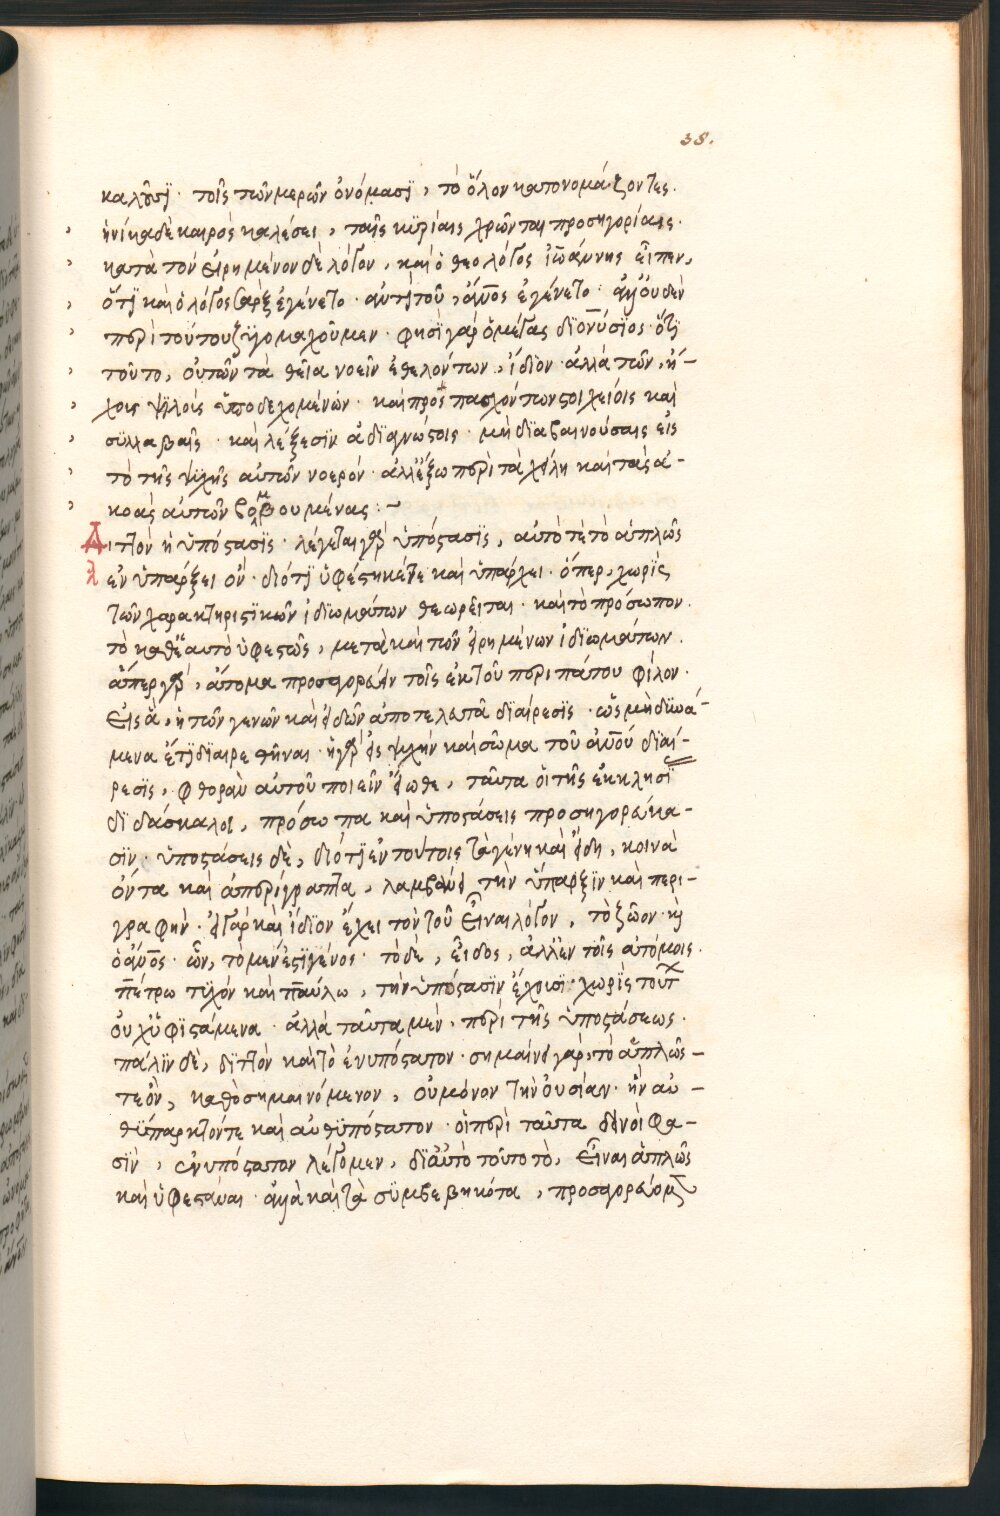 38.
καλοῦσϊ · τοῖς τῶν μερῶν ὀνόμασϊ, τὸ ὅλον κατονομάζοντες.
ἡνίκα δὲ καιρὸς καλέσει, ταῖς κυρίαις χρῶνται προσηγορίαις.
κατὰ τὸν εἰρημένον δὲ λόγον, καὶ ὁ θεολόγος ἰω̄άννης εἶπεν,
ὅτϊ καὶ ὁ λόγος σὰρξ ἐγένετο · ἀντὶ τοῦ, ἄν̄ος ἐγένετο · ἀλλ' οὐδὲν
περὶ τούτου ζϋγομαχοῦμεν · φησὶ γὰρ ὁ μέγας διονύσϊος · ὅτϊ
τοῦτο, οὐ τῶν τὰ θεῖα νοεῖν ἐθελόντων, ἴδϊον · ἀλλὰ τῶν, ἤ-
χους ψϊλοὺς ὑποδεχομένων · καὶ πρὸς πασχόντων στοιχείοις καὶ
σϋλλαβαῖς · καὶ λέξεσϊν ἀδϊαγνώστοις · μὴ δϊαβαινούσαις εἰς
τὸ τῆς ψϋχῆς αὐτῶν νοερόν · ἀλλ' ἔξω περὶ τὰ χείλη καὶ τὰς ἀ-
κοὰς αὐτῶν βομβουμένας : ~
Διττὸν ἡ ὑπόστασϊς · λέγεται γὰρ ὑπόστασϊς, αὐτό τε τὸ ἁπλῶς
λ ἐν ὑπάρξει ὄν · διότϊ ὑφέστηκέ τε καὶ ὑπάρχει · ὅπερ, χωρὶς
τῶν χαρακτηρϊστϊκῶν ἰδϊωμάτων θεωρεῖται · καὶ τὸ πρόσωπον.
τὸ καθ' ἑαυτὸ ὑφεστὼς, μετὰ καὶ τῶν εἰρημένων ἰδϊωμάτων.
ἅπερ γὰρ, ἄτομα προσαγορεύειν τοῖς ἐκ τοῦ περιπάτου φίλον.
εἰς ἃ, ἡ τῶν γενῶν καὶ εἰδῶν ἀποτελευτᾶ δϊαίρεσϊς · ὡς μὴ δϋνά-
μενα ἔτϊ δϊαιρεθῆναι · ἡ γὰρ εἰς ψϋχὴν καὶ σῶμα τοῦ ἀν̄ου δϊαί-
ρεσϊς, φθορὰν αὐτοῦ ποιεῖν εἴωθε, ταῦτα οἱ τῆς ἐκκλησϊ
δϊδάσκαλοι, πρόσωπα καὶ ὑποστάσεις προσηγορεύκα-
σϊν · ὑποστάσεις δὲ, διότϊ ἐν τούτοις τὰ γένη καὶ εἴδη, κοινὰ
ὄντα καὶ ἀπερίγραπτα, λαμβάνει τὴν ὕπαρξϊν καὶ περι-
γραφήν · εἰ γὰρ καὶ ἴδϊον ἔχει τὸν τοῦ εἶναι λόγον, τὸ ζῶον · καὶ
ὁ ἄν̄ος · ὧν, τὸ μέν ἐστϊ γένος · τὸ δὲ, εἶδος, ἀλλ' ἐν τοῖς ἀτόμοις.
π̄έτρω τϋχὸν καὶ π̄αύλω, τὴν ὑπόστασϊν ἔχουσϊ · χωρὶς τούτ
οὐχ ὑφϊστάμενα · ἀλλὰ ταῦτα μὲν, περὶ τῆς ὑποστάσεως.
πάλϊν δὲ, δϊττὸν καὶ τὸ ἐνυπόστατον · σημαίνει γὰρ, τὸ ἁπλῶς-
τε ὂν, καθὸ σημαινόμενον, οὐ μόνον τὴν οὐσίαν · ἣν αὐ-
θϋπαρκτόν τε καὶ αὐθϋπόστατον · οἱ περὶ ταῦτα δεινοί φα-
σϊν, ἐνυπόστατον λέγομεν, δϊ' αὐτὸ τοῦτο τὸ, εἶναι ἁπλῶς
καὶ ὑφεστάναι · ἀλλὰ καὶ τὰ σϋμβεβηκότα, προσαγορεύομ